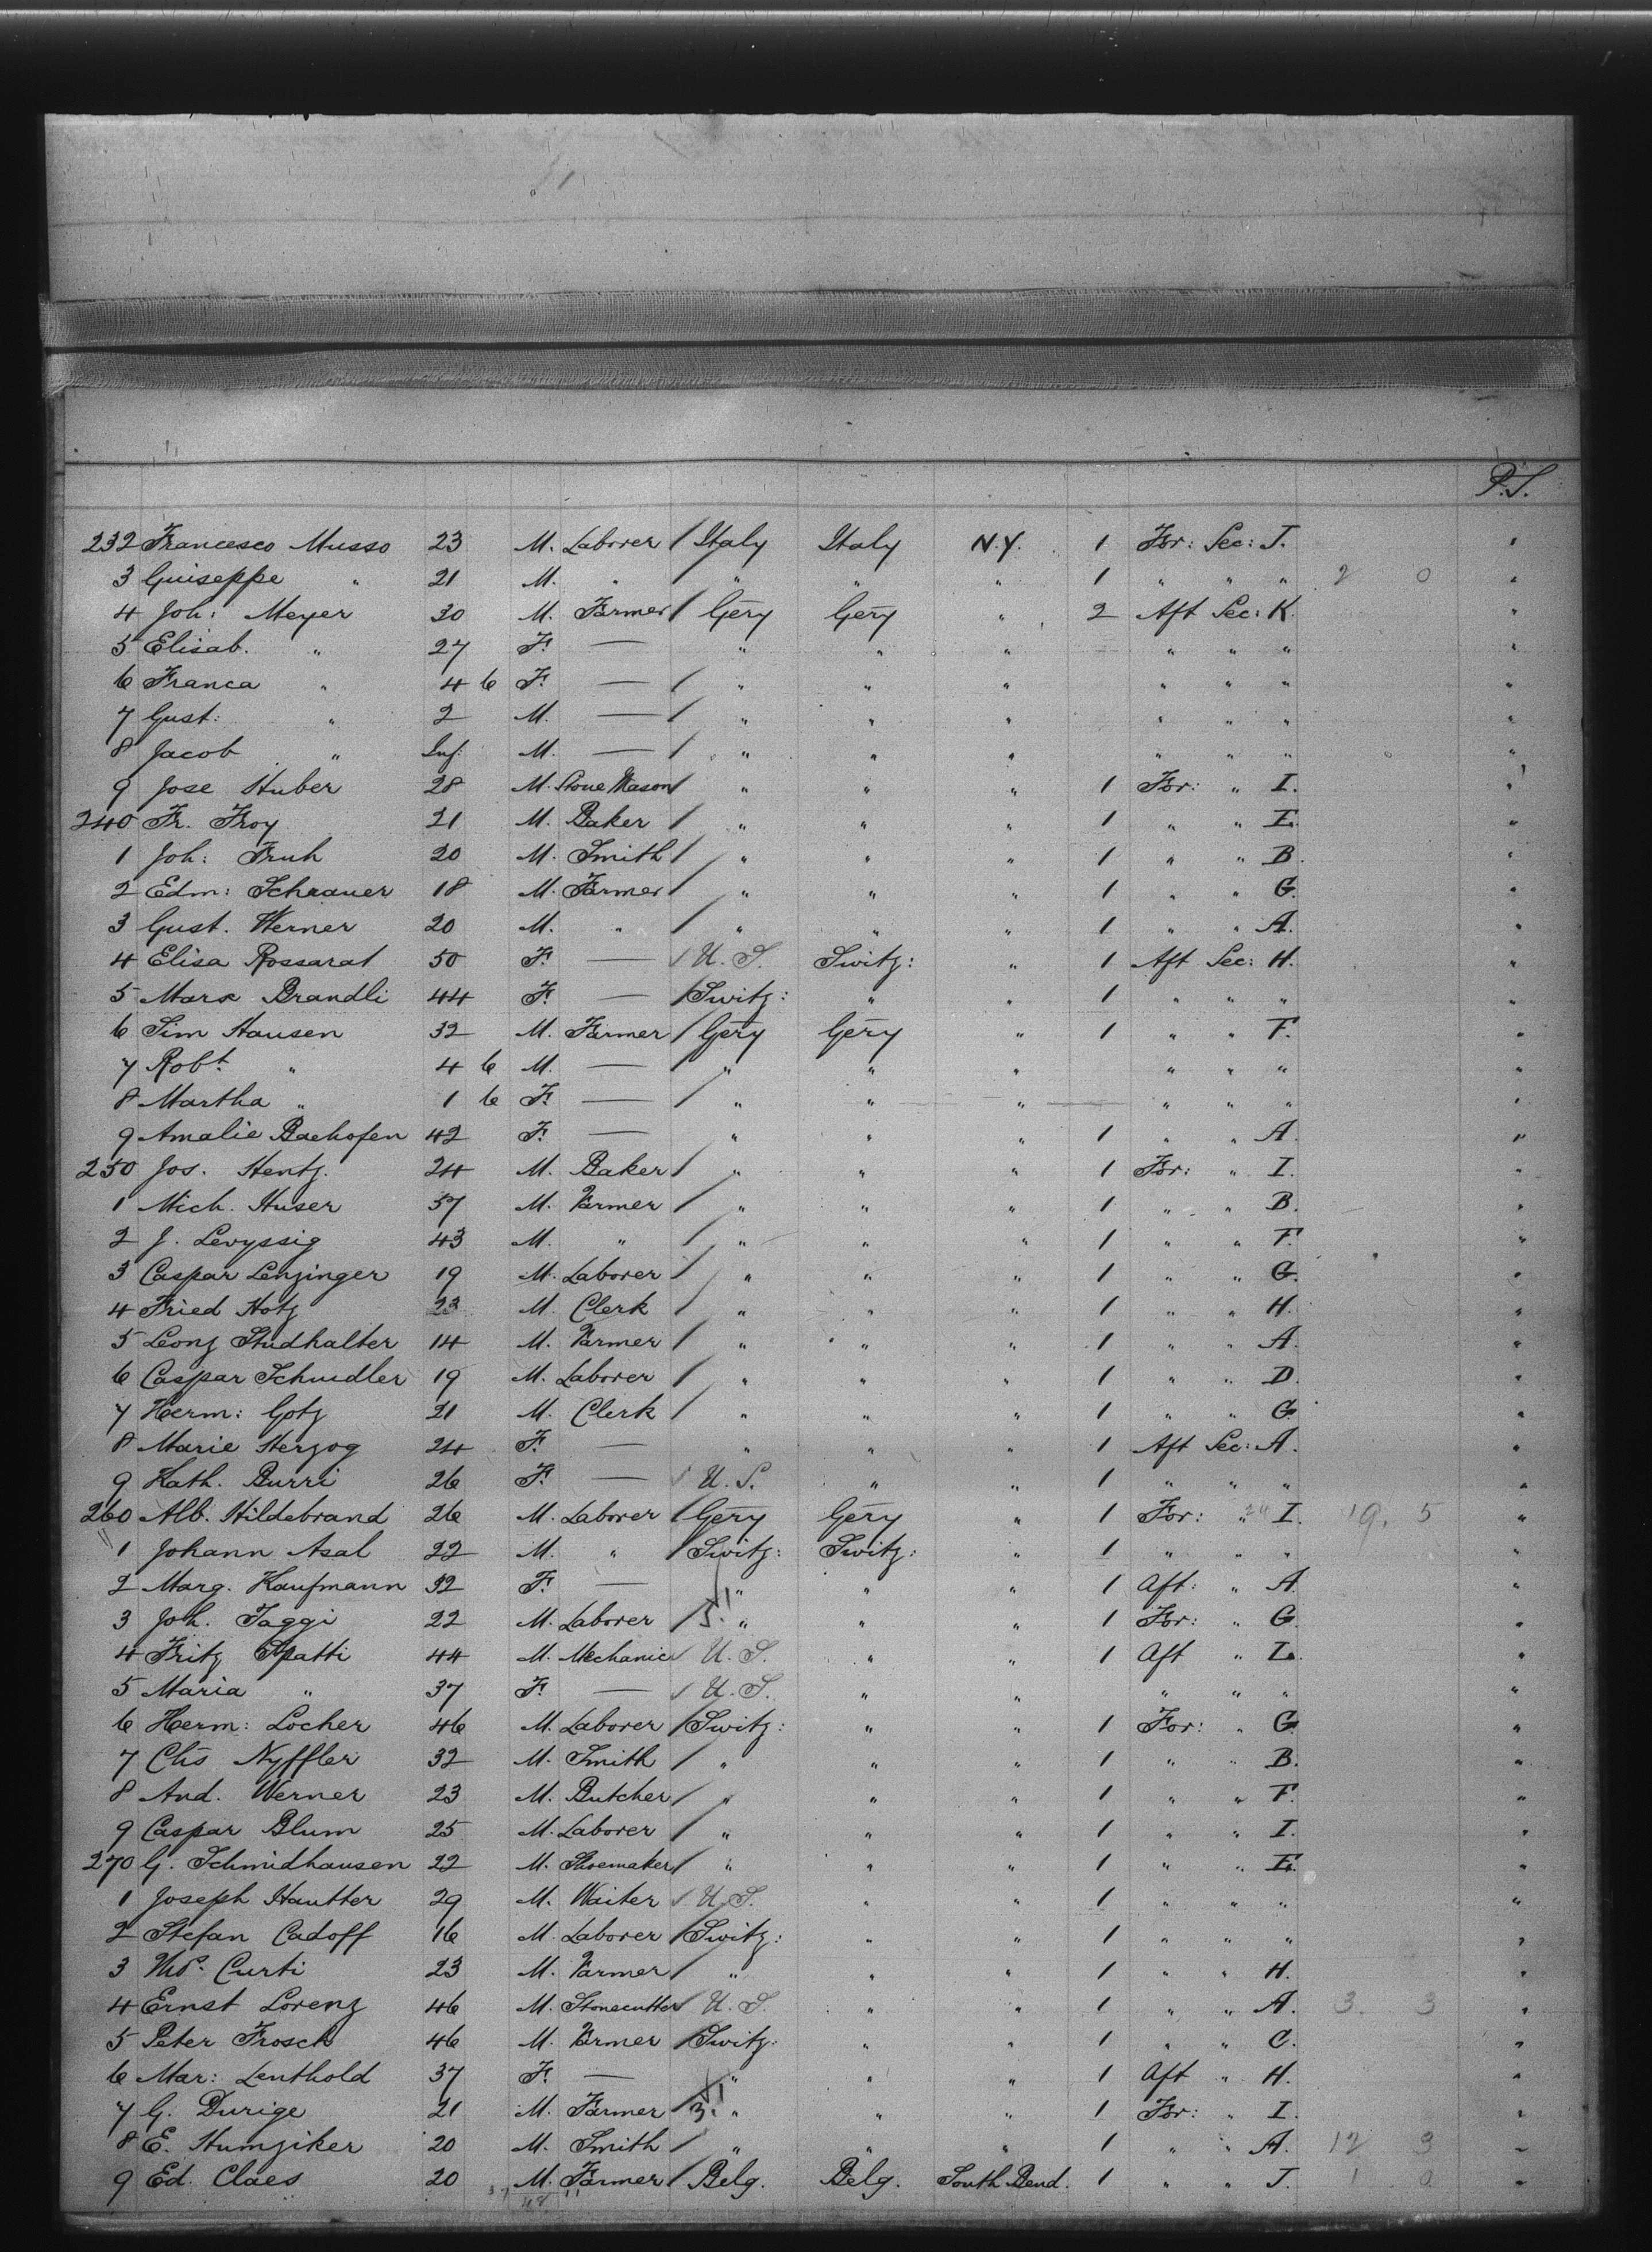 P.S.
232 Francesco Musso 23 M. Laborer / Italy Italy N.Y. 1 For: Sec: J. "
3 Guiseppe " 21 M. " / " " " 1 " " " 2 0 "
4 Joh: Meyer 30 M. Farmer / Gery Gery " 2 Aft Sec: K. "
5 Elisab. " 27 F. — " " " " " " "
6 Franca " 4 6 F. — / " " " " " " "
7 Gust: " 2 M. — / " " " " " " "
8 Jacob " Inf. M. — / " " " " " " "
9 Jose Huber 28 M. Stone Mason / " " " 1 For: " I. "
240 Fr. Froy 21 M. Baker / " " " 1 " " E. "
1 Joh: Fruh 20 M. Smith / " " " 1 " " B. "
2 Edm: Schrauer 18 M. Farmer / " " " 1 " " G. "
3 Gust. Werner 20 M. " / " " " 1 " " A. "
4 Elisa Rossarat 50 F. — / U.S. Switz: " 1 Aft Sec: H. "
5 Marx Brandli 44 F. — / Switz: " " 1 " " " "
6 Sim Hausen 32 M. Farmer / Gery Gery " 1 " " F. "
7 Robt. " 4 6 M. — / " " " " " " "
8 Martha " 1 6 F. — / " " " " " " "
9 Amalie Bachofen 42 F. — " " " 1 " " A. "
250 Jos. Hentz. 24 M. Baker / " " " 1 For: " I. "
1 Mich. Huser 37 M. Farmer / " " " 1 " " B. "
2 J. Levyssig 43 M. " / " " " 1 " " F. "
3 Caspar Lenzinger 19 M. Laborer / " " " 1 " " G. "
4 Fried Hotz 23 M. Clerk / " " " 1 " " H. "
5 Leonz Studhalter 14 M. Farmer / " " " 1 " " A. "
6 Caspar Schudler 19 M. Laborer / " " " 1 " " D. "
7 Herm: Gotz 21 M. Clerk / " " " 1 " " G. "
8 Marie Herzog 24 F. — " " " 1 Aft Sec: A. "
9 Kath. Burri 26 F. — / U.S. " " 1 " " " "
260 Alb. Hildebrand 26 M. Laborer / Gery Gery " 1 For: " I. 19. 5 "
1 Johann Asal 22 M. " / Switz: Switz: " 1 " " " "
2 Marg. Kaufmann 32 F. — " " " 1 Aft: " A. "
3 Joh. Jaggi 22 M. Laborer / " " " 1 For: " G. "
4 Fritz Spatti 44 M. Mechanic / U.S. " " 1 Aft " L. "
5 Maria " 37 F. — / U.S. " " " " " "
6 Herm: Locher 46 M. Laborer / Switz: " " 1 For: " G. "
7 Chs Nyffler 32 M. Smith / " " " 1 " " B. "
8 And. Werner 23 M. Butcher / " " " 1 " " F. "
9 Caspar Blum 25 M. Laborer / " " " 1 " " I. "
270 G. Schmidhausen 22 M. Shoemaker / " " " 1 " " E. "
1 Joseph Hautter 29 M. Waiter / U.S. " " 1 " " " "
2 Stefan Cadoff 16 M. Laborer / Switz: " " 1 " " " "
3 Curti 23 M. Farmer / " " " 1 " " H. "
4 Ernst Lorenz 46 M. Stonecutter / U.S. " " 1 " " A. 3. 3 "
5 Peter Frosch 46 M. Farmer / Switz: " " 1 " " C. "
6 Mar: Lenthold 37 F. — " " " 1 Aft " H. "
7 G. Durige 21 M. Farmer " " " 1 For: " I. "
8 E. Humziker 20 M. Smith / " " " 1 " " A. 12 3 "
9 Ed. Claes 20 M. Farmer / Belg. Belg. South Bend. 1 " " J. 1 0 "